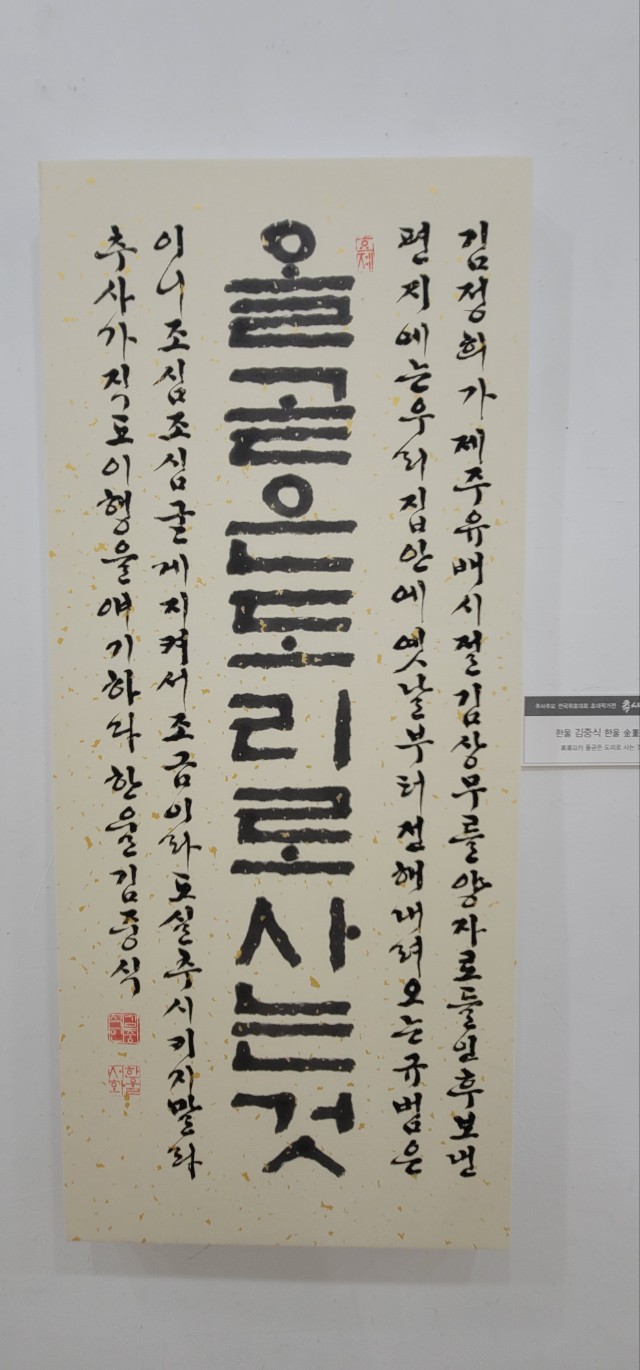 김정희가제주유배시절김상무를양자로들인후보낸
편지에는우리집안에옛날부터전해내려오는규범은
올곧은도리로사는것
이니조심조심굳게지켜서조금이라도실추시키지말라
추사가직도이행을얘기하다한울김중식
한울서화
추사추모 전국휘호대회 초대작가전
한울 김중식 한울 金重
올곧은 도리로 사는